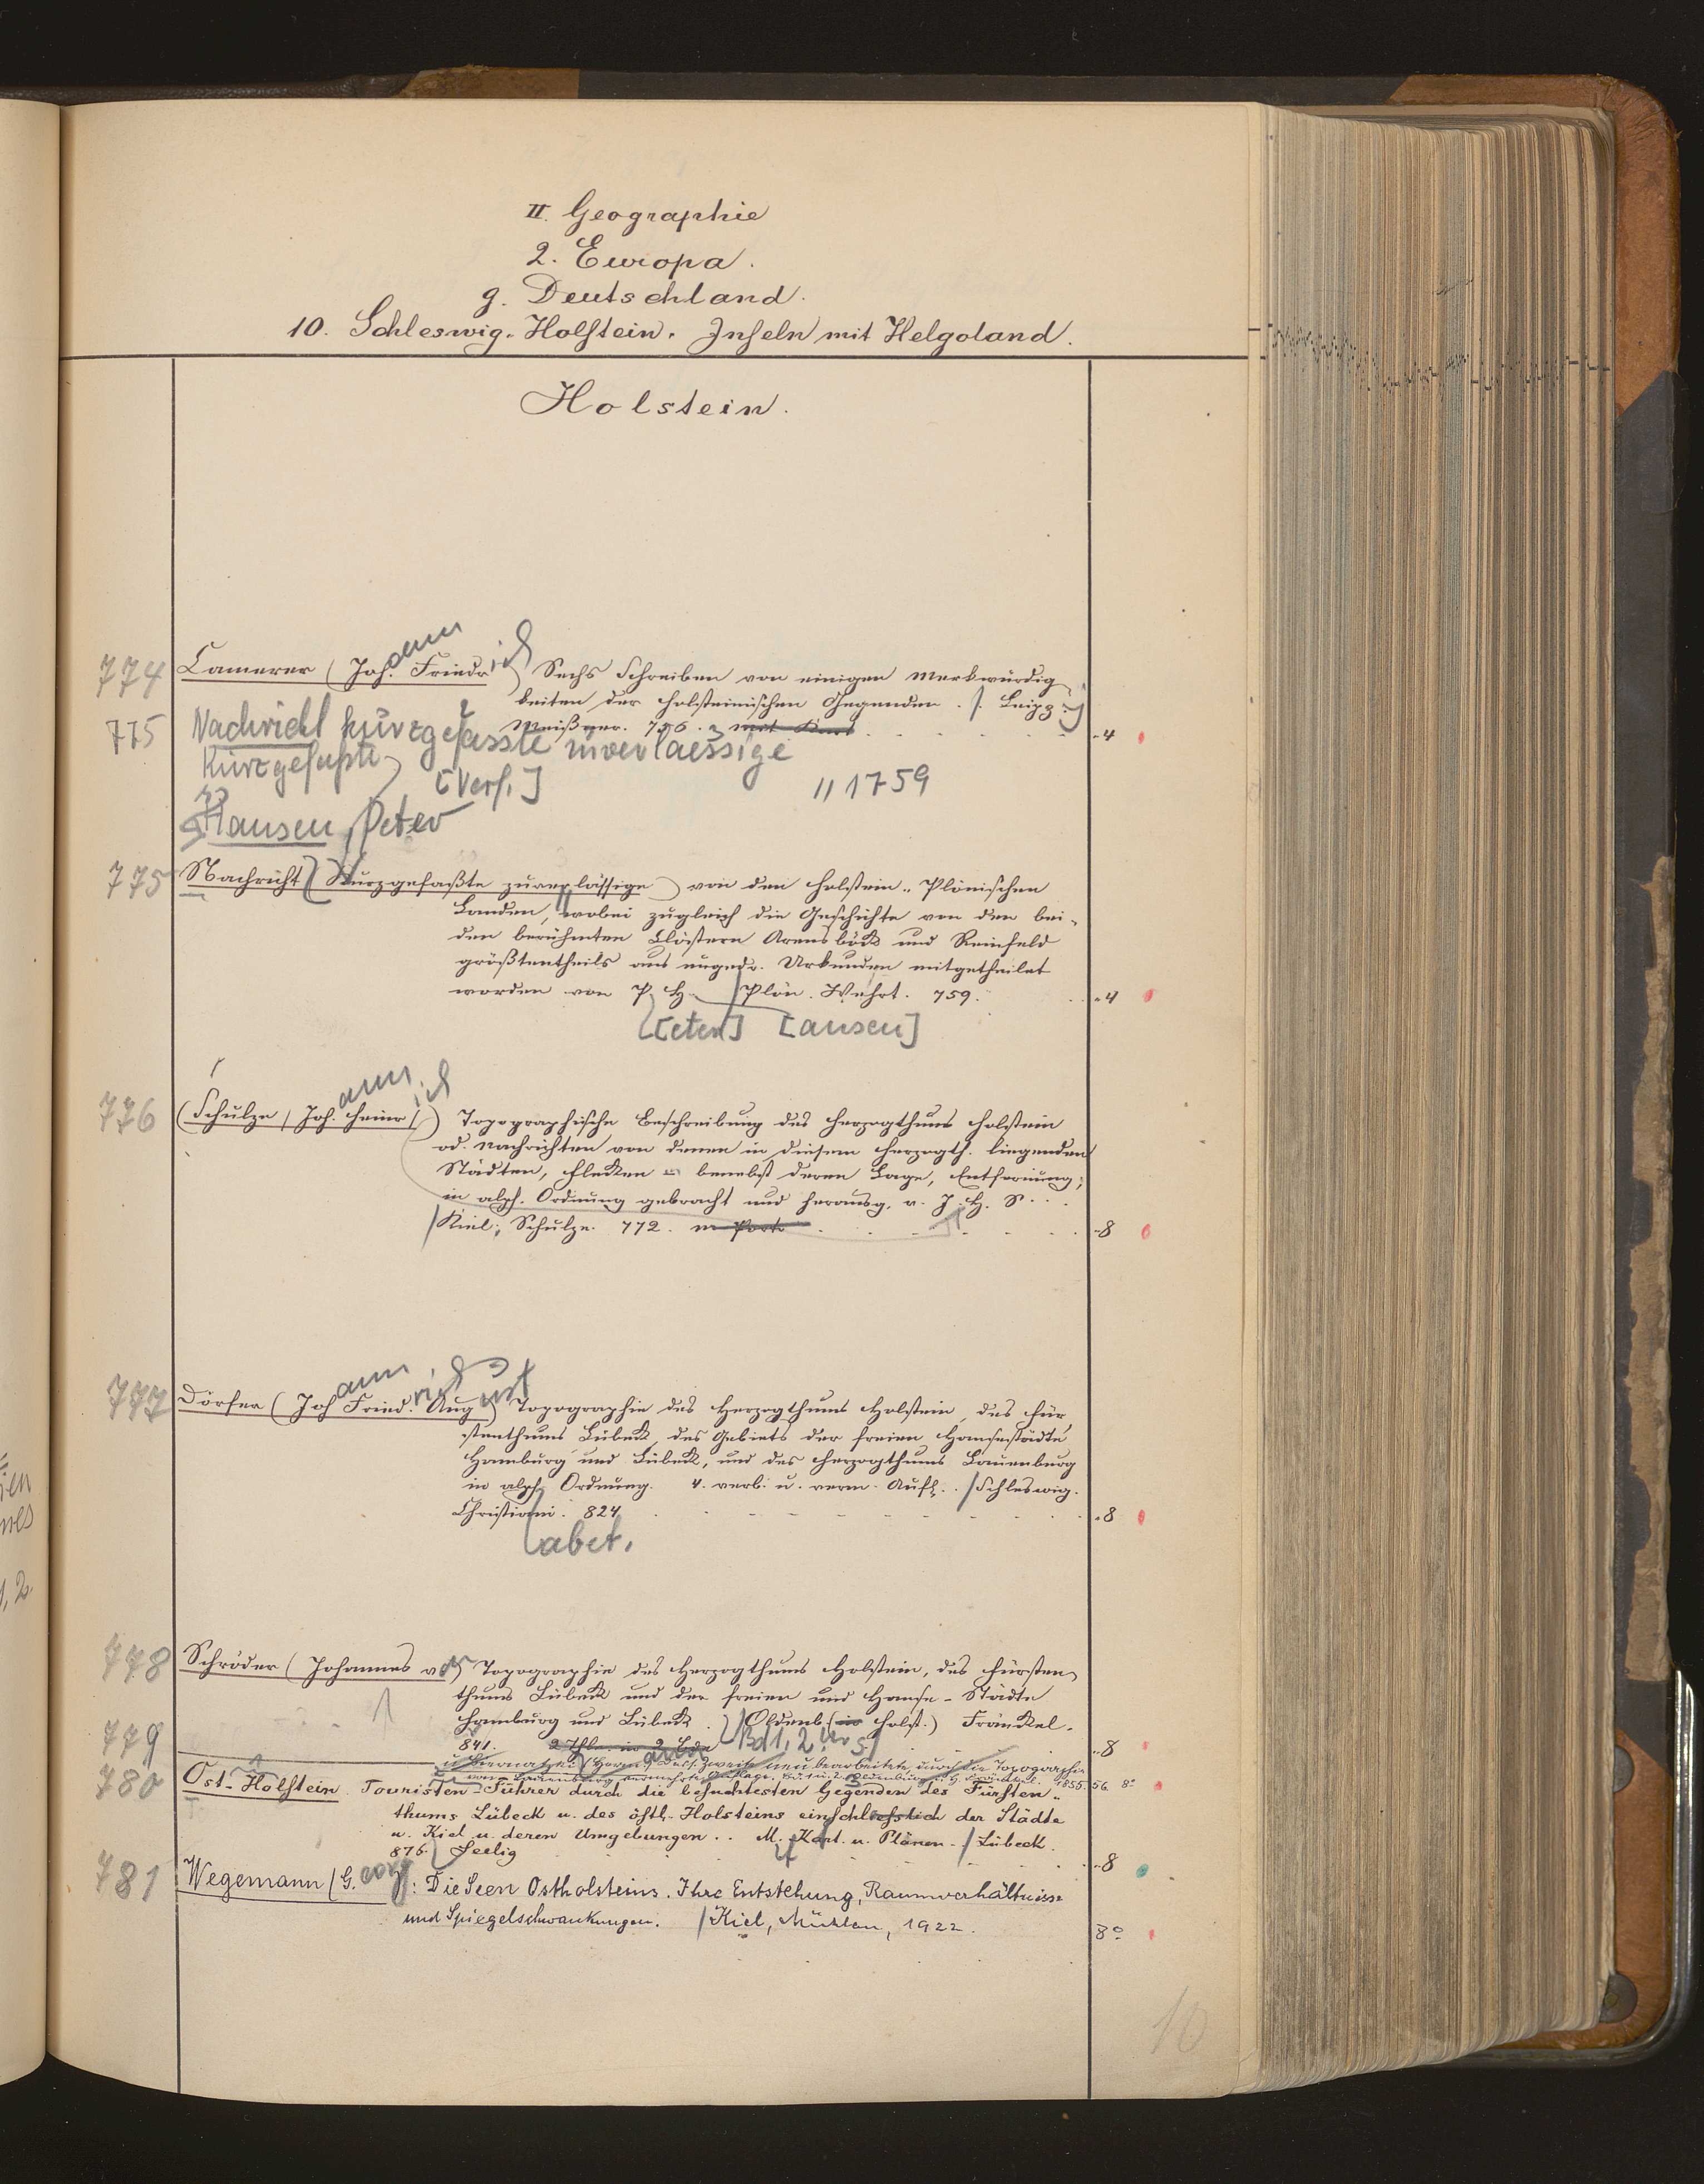 II. Geographie
2. Europa.
g. Deutschland.
10. Schleswig-Holstein. Inseln mit Helgoland.
Holstein.
774 Camerer (Joh.ann Friedrich) Sechs Schreiben von einigen Merkwürdig-
keiten der holsteinischen Gegenden. /. Leipz.
Meißner. 756. mit Kart -4
775 Nachricht kurzgefasste zuverlaessige
Kurzgefaßte
[Verf.] 11 1759
Hansen, Peter
775 Nachricht (Kurzgefaßte zuverlässige) von den holstein-Plönischen
Landen, wobei zugleich die Geschichte von den bei-
den berühmten Clöstern Arensböck und Reinfeld
größtentheils aus ungedr. Urkunden mitgetheilet
worden von P. H. /Plön. Wehrt. 759. -4
[eter] [ansen]
776 (Schulze / Joh.ann Heinrich/) Topographische Beschreibung des Herzogthums Holstein
od. Nachrichten von denen in diesem Herzogth. liegenden
Städten, Flecken benebst deren Lage, Entfernung;
in alph. Ordnung gebracht und herausg. v. J. H. S.
/Kiel, Schulze. 772. m Port -8
777 Dörfer (Johann Friedrich August) Topographie des Herzogthums Holstein, des Für
stenthums Lübeck, des Gebiets der freien Hansestädte
Hamburg und Lübeck, und des Herzogthums Lauenburg
in alph. Ordnung. 4. verb. u. verm. Aufl. /Schleswig.
Christiani. 824 -8
abet.
778 Schröder (Johannes von) Topographie des Herzogthums Holstein, des Fürsten-
thums Lübeck und der freien und Hanse-Städte
Hamburg und Lübeck. /Oldenb. (in Holst.) Fränckel.
779 841. 2 Thle. in 2 Bde Bd 1, 2 -8
u. Biernatzki (Herm.) Zweite neu bearbeitete, durch die Topographie
von Lauenburg vermehrte Auflage. Bd 1 u. 2. Oldenburg 1855. 56. 8°
780 Ost-Holstein. Touristen-Führer durch die besuchtesten Gegenden des Fürsten-
thums Lübeck u. des östl. Holsteins einschliesslich der Städte
u. Kiel u. deren Umgebungen. M. Kart. u. Plänen. /Lübeck.
876. Seelig -8
781 Wegemann (G.eorg): Die Seen Ostholsteins. Ihre Entstehung, Raumverhältnisse
und Spiegelschwankungen. /Kiel, Mühlau, 1922. 8°
10